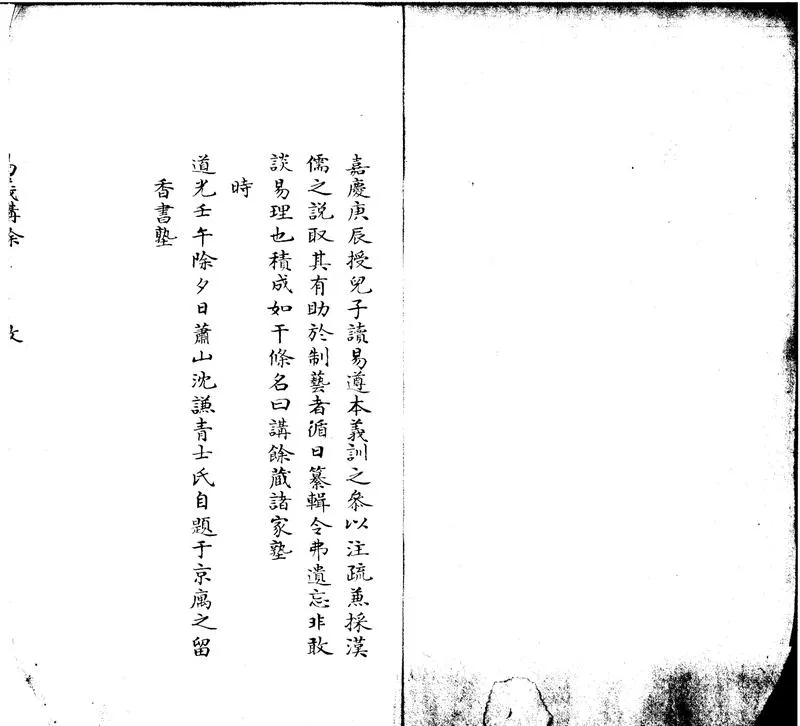 嘉慶庚辰授兒子讀易遵本義訓之叅以注疏兼採漢
儒之説取其有助於制藝者循日纂輯令弗遺忘非敢
談易理也積成如干條名曰講餘蔵諸家塾
時
道光壬午除夕日蕭山沈謙青士氏自題于京寓之留
香書塾
講餘